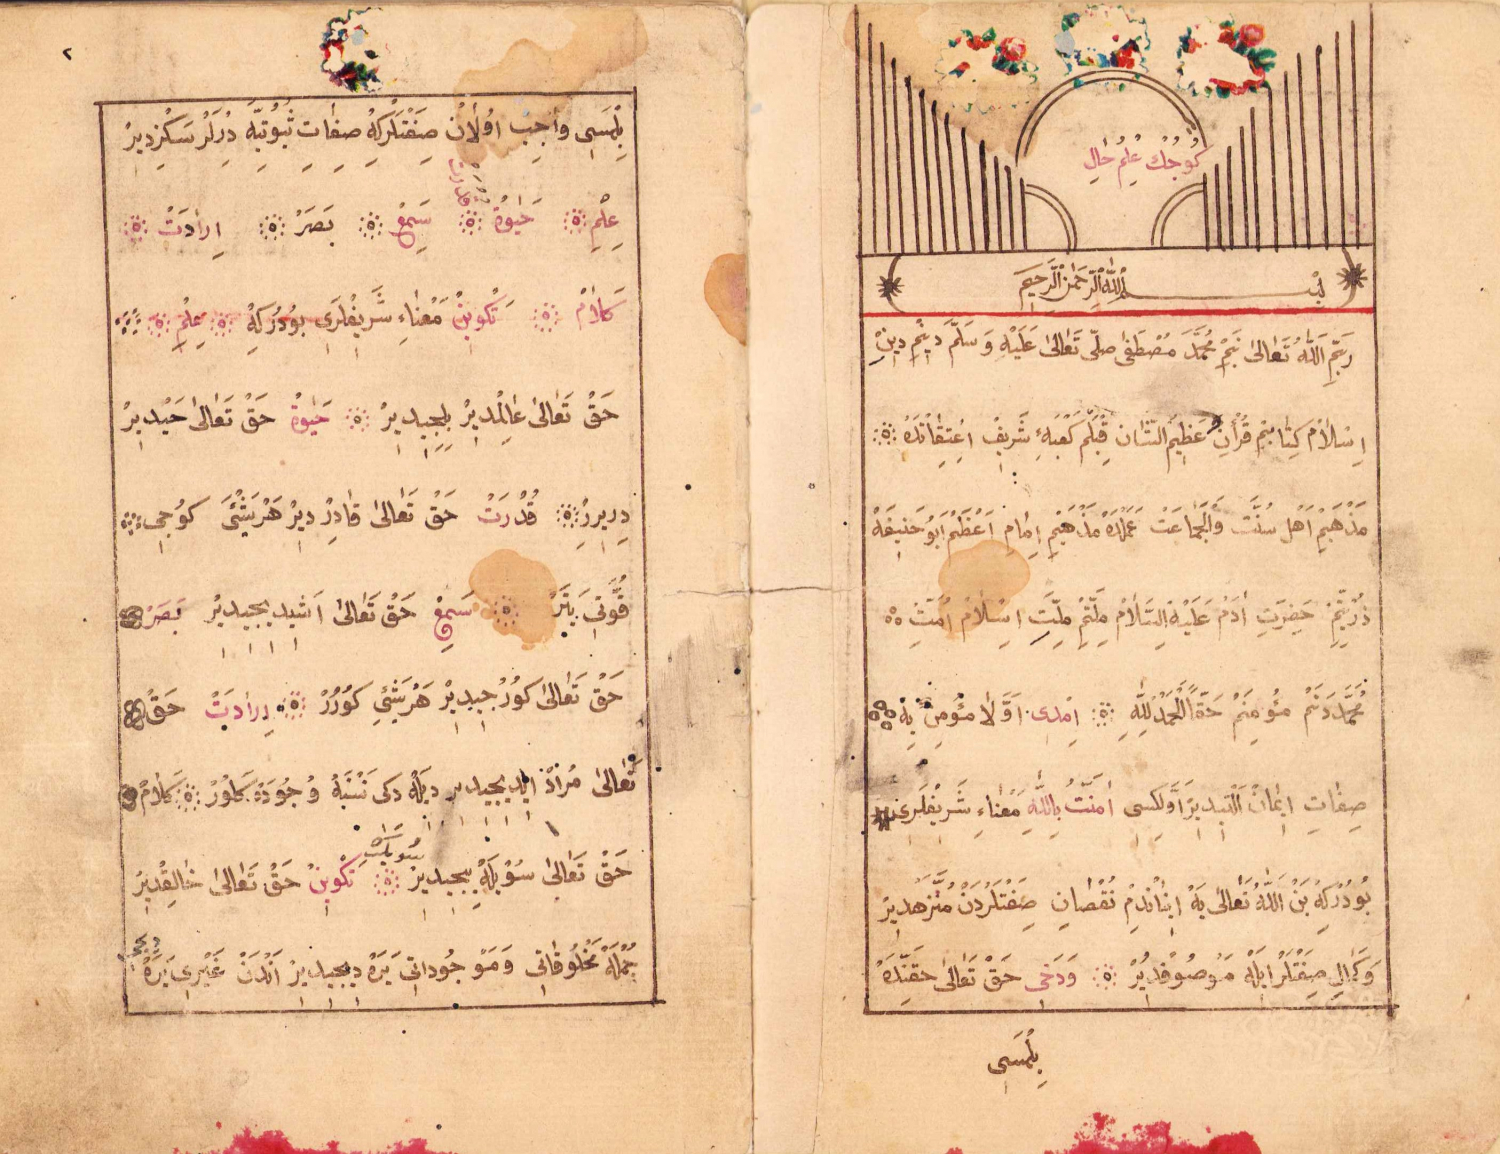 كُوجُك عِلْمُ حَالِ
بِسْمِ اللهِ الرَّحْمٰنِ الرَّحِيمِ
رَبِّمِ اَللّٰهُ تَعَالىٰ نَبِيِّمْ مُحَمَّدْ مُصْطَفىٰ صلّى تَعَالىٰ عَلَيْهِ وَسَلَّمَ دِينِمْ دِينِ
اِسْلَامْ كِتَابِمْ قُرْاٰنِ عَظِيمُ الشَّان قِبْلَمْ كَعْبَهٔ شَرِيفْ اِعْتِقَاتْدَهْ
مَذْهَبِمْ اَهْلِ سُنَّتْ وَالْجَمَاعَتْ عَمَلْدَهْ مَذْهَبِمْ اِمَامِ اَعْظَمْ اَبُو حَنِيفَهْ
ذُرِّيَتِمْ حَضِرَتِ اٰدَمْ عَلَيْهِ السَّلَامْ مِلَّتِمْ مِلَّتِ اِسْلَامْ اُمَّتِ
مُحَمَّدْدَنِمْ مُؤْمِنِمْ حَقًّا اَلْحَمْدُ لِلّٰهِ اِمْدِى اَوَّلَا مُؤْمِنْ يَهْ
صِفَاتِ اِيمَانْ اَلْتِيدِيرْ اَوَّلْكِسِى اٰمَنْتُ بِاللّٰهِ مَعْنَاءِ شَرِيفْلَرِى
بُودُرْكِهْ بَنْ اَللّٰهُ تَعَالىٰ يَهْ اِينَانْدِمْ نُقْصَانِ صِفَتْلَرْدَنْ مُنَزَّهْدِيرْ
وَكَمَالِ صِفَتْلَرْ اِيلَهْ مَوْصُوفْدِيرْ وَدَخِى حَقْ تَعَالىٰ حَقِنْدَهْ
بِلْمَسِى
٢
بِلْمَسِى وَاجِبْ اُولَانْ صِفَتْلَرْكِهْ صِفَاتِ ثُبُوتِيَّهْ دِرْلَرْ سَكِزْدِيرْ
عِلْمِ حَيٰوةْ سَمِعْ بَصَرْ اِرَادَتْ
كَلَامْ تَكْوِينْ مَعْنَاءِ شَرِيفْلَرِى بُودُرْكِهْ عِلْمِ
حَقْ تَعَالىٰ عَالِمْدِيرْ بِلِيجِيدِيرْ حَيٰوةْ حَقْ تَعَالىٰ حَيْدِيرْ
دِيرِيدِرْ قُدْرَتْ حَقْ تَعَالىٰ قَادِرْ دِيرْ هَرْ شَيْئَ كُوجِى
قُوَّتِى يَتَرْ سَمِعْ حَقْ تَعَالىٰ اَشِيدِيجِيدِيرْ بَصَرْ
حَقْ تَعَالىٰ كُورُجِيدِيرْ هَرْ شَيْئِ كُورُرْ اِرَادَتْ حَقْ
تَعَالىٰ مُرَادْ اِيدِيجِيدِيرْ دِيلَهْ دِكى نَسْنَهْ وُجُودَهْ كَلُورْ كَلَامْ
حَقْ تَعَالىٰ سُوْيلَيِيجِيدِيرْ تَكْوِينْ حَقْ تَعَالىٰ خَالِقْدِيرْ
جُمْلَهْ مَخْلُوقَاتِى وَمَوْجُودَاتِى يَرَدِيجِيدِيرْ اَنْدَنْ غَيْرِى يَرَهْ